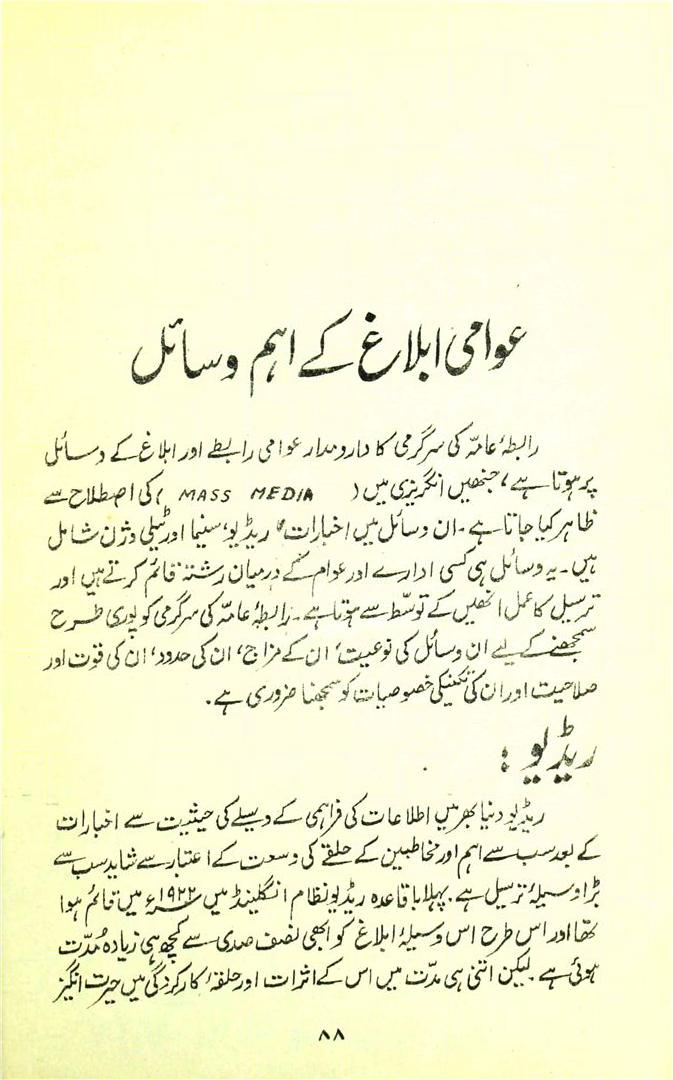 عوامی ابلاغ کے اہم وسائل
رابطۂ عامّہ کی سرگرمی کا دارومدار عوامی رابطے اور ابلاغ کے وسائل
پر ہوتا ہے، جنھیں انگریزی میں ( MASS MEDIA ) کی اصطلاح سے
ظاہر کیا جاتا ہے۔ ان وسائل میں اخبارات، ریڈیو، سنیما اور ٹیلی وژن شامل
ہیں۔ یہ وسائل ہی کسی ادارے اور عوام کے درمیان رشتہ قائم کرتے ہیں اور
ترسیل کا عمل انھیں کے توسّط سے ہوتا ہے۔ رابطۂ عامّہ کی سرگرمی کو پوری طرح
سمجھنے کے لیے ان وسائل کی نوعیت، ان کے مزاج، ان کی حدود، ان کی قوت اور
صلاحیت اور ان کی تکنیکی خصوصیات کو سمجھنا ضروری ہے۔
ریڈیو :
ریڈیو دنیا بھر میں اطلاعات کی فراہمی کے وسیلے کی حیثیت سے اخبارات
کے بعد سب سے اہم اور مخاطبین کے حلقے کی وسعت کے اعتبار سے شاید سب سے
بڑا وسیلۂ ترسیل ہے۔ پہلا باقاعدہ ریڈیو نظام انگلینڈ میں ۱۹۲۲ء میں قائم ہوا
تھا اور اس طرح اس وسیلۂ ابلاغ کو ابھی نصف صدی سے کچھ ہی زیادہ مُدّت
ہوئی ہے۔ لیکن اتنی ہی مدّت میں اس کے اثرات اور حلقۂ کارکردگی میں حیرت انگیز
۸۸